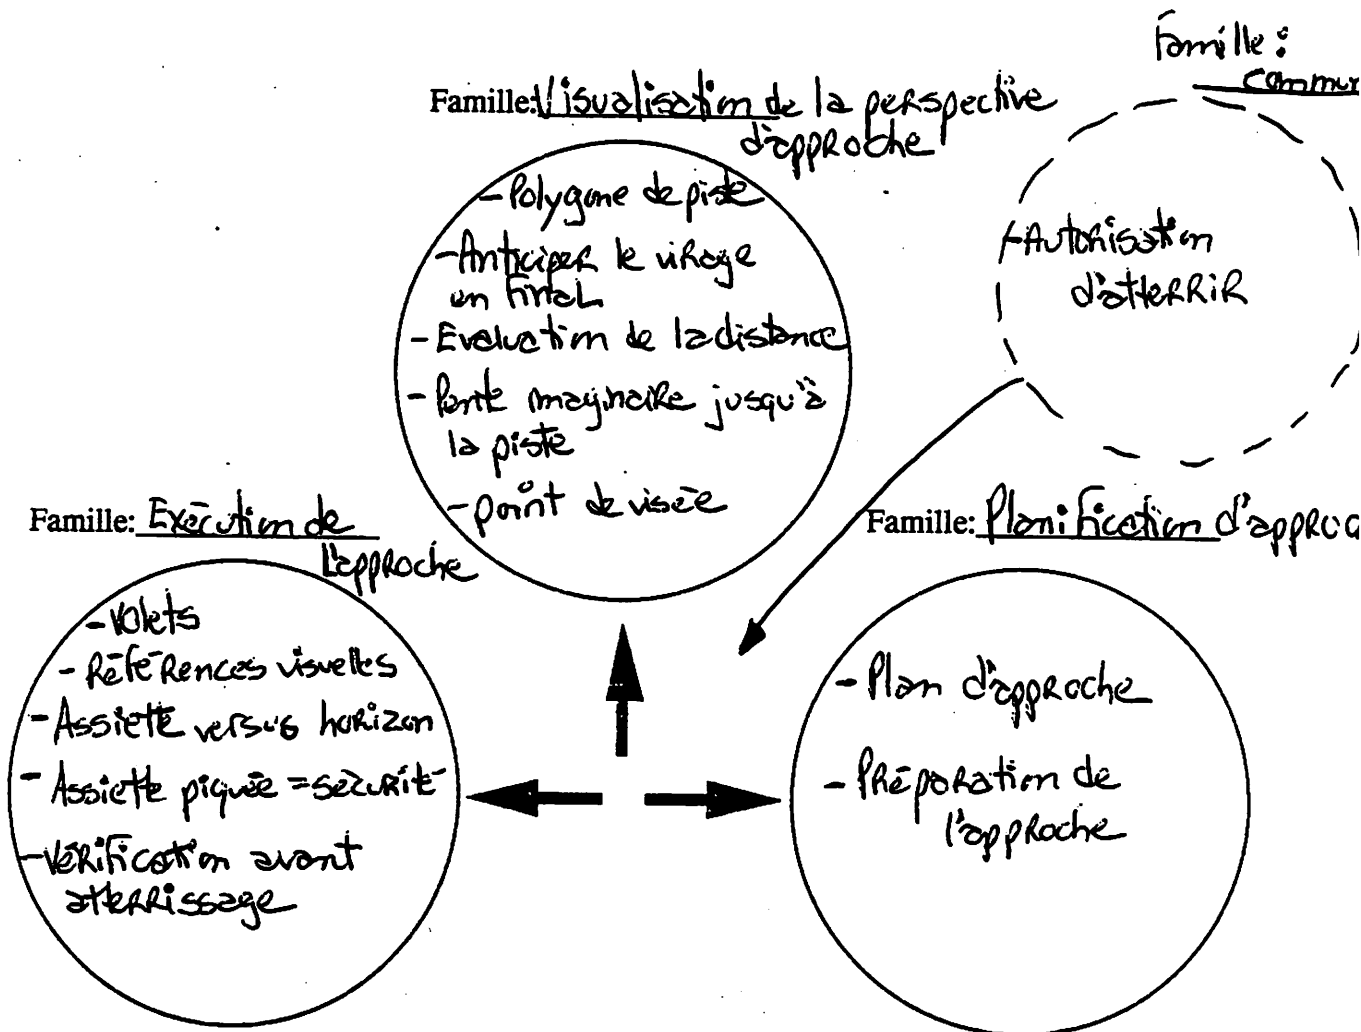 Famille:
commun
Famille: Visualisation de la perspective
d'approche
- Polygone de piste
- Anticiper le virage
en final
- Evaluation de la distance
- Pente imaginaire jusqu'à
la piste
- point de visée
- Autorisation
d'atterrir
Famille: Exécution de
l'approche
- Volets
- Références visuelles
- Assiette versus horizon
- Assiette piquée = sécurité
- Vérification avant
atterrissage
Famille: Planification d'approc
- Plan d'approche
- Préparation de
l'approche